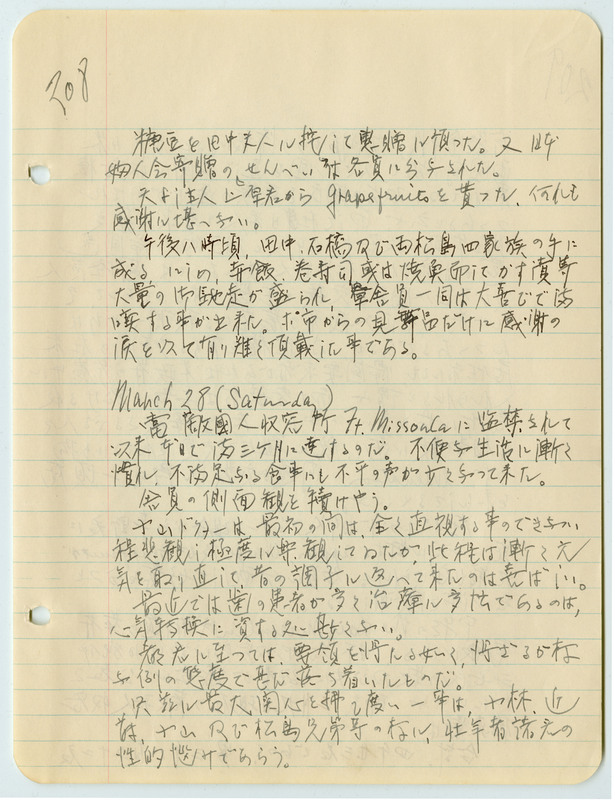 208
糖豆を田中夫人に接して恵贈に預った。又
婦人会寄贈の、せんべいが各員に分与された。
から grapefruitsを貰つた、何れも
感謝に堪へない。
午後八時頃、田中、石橋及び両松島四家族の手に
成る、にしめ、赤飯、巻寿司或は焼魚而してかす漬等
大量の御馳走が盛られ、舎員一同は大喜びで
する事が出来た。ポ市からの見舞品だけに感謝の
涙を以て有り難く頂戴した事である。
March 28 (Saturday)
当敵國人収容所 Ft. Missoulaに監禁されて
以来本日で満三ケ月に達するのだ。不便な生活に漸く
慣れ、不満足なる食事にも不平の声が少くなつて来た。
舎員の側面観を続けやう。
ヤ山ドクターは最初の間は、全く直視する事のできない
程悲観し極度に楽観してゐたが、此程は漸く元
気を取り直して、昔の調子に返へて来たのは喜ばしい。
最近では歯の患者が多く治療に多忙であるのは、
心気転換に資する処甚くない。
君に至つては、要領を得たる如く、得ざるが如
な例の態度で甚だ落ち着いたものだ。
に最大関心を拂ひ度い一事は、ヤ林、近
、ヤ山及び松島兄弟等の如し、壮年者諸兄の
性的悩みであらう。